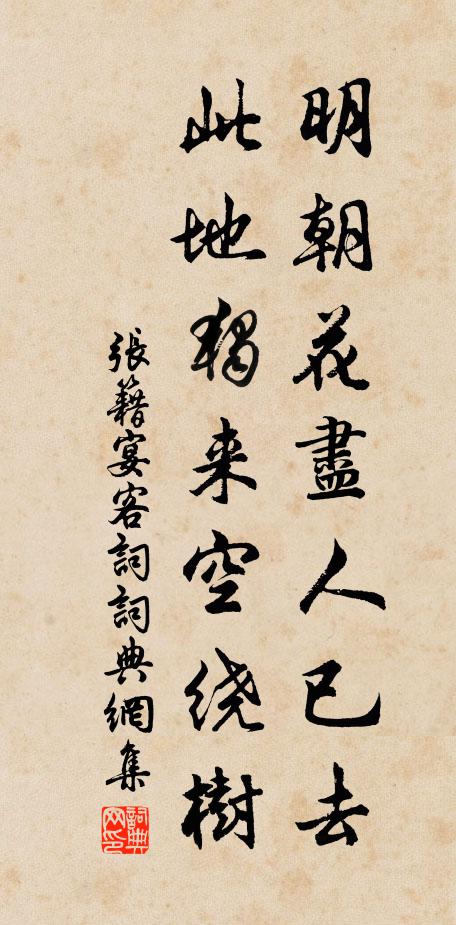 明朝花盡人已去
此地獨来空绕樹
張籍宴客詞詞典網集
詞典网印